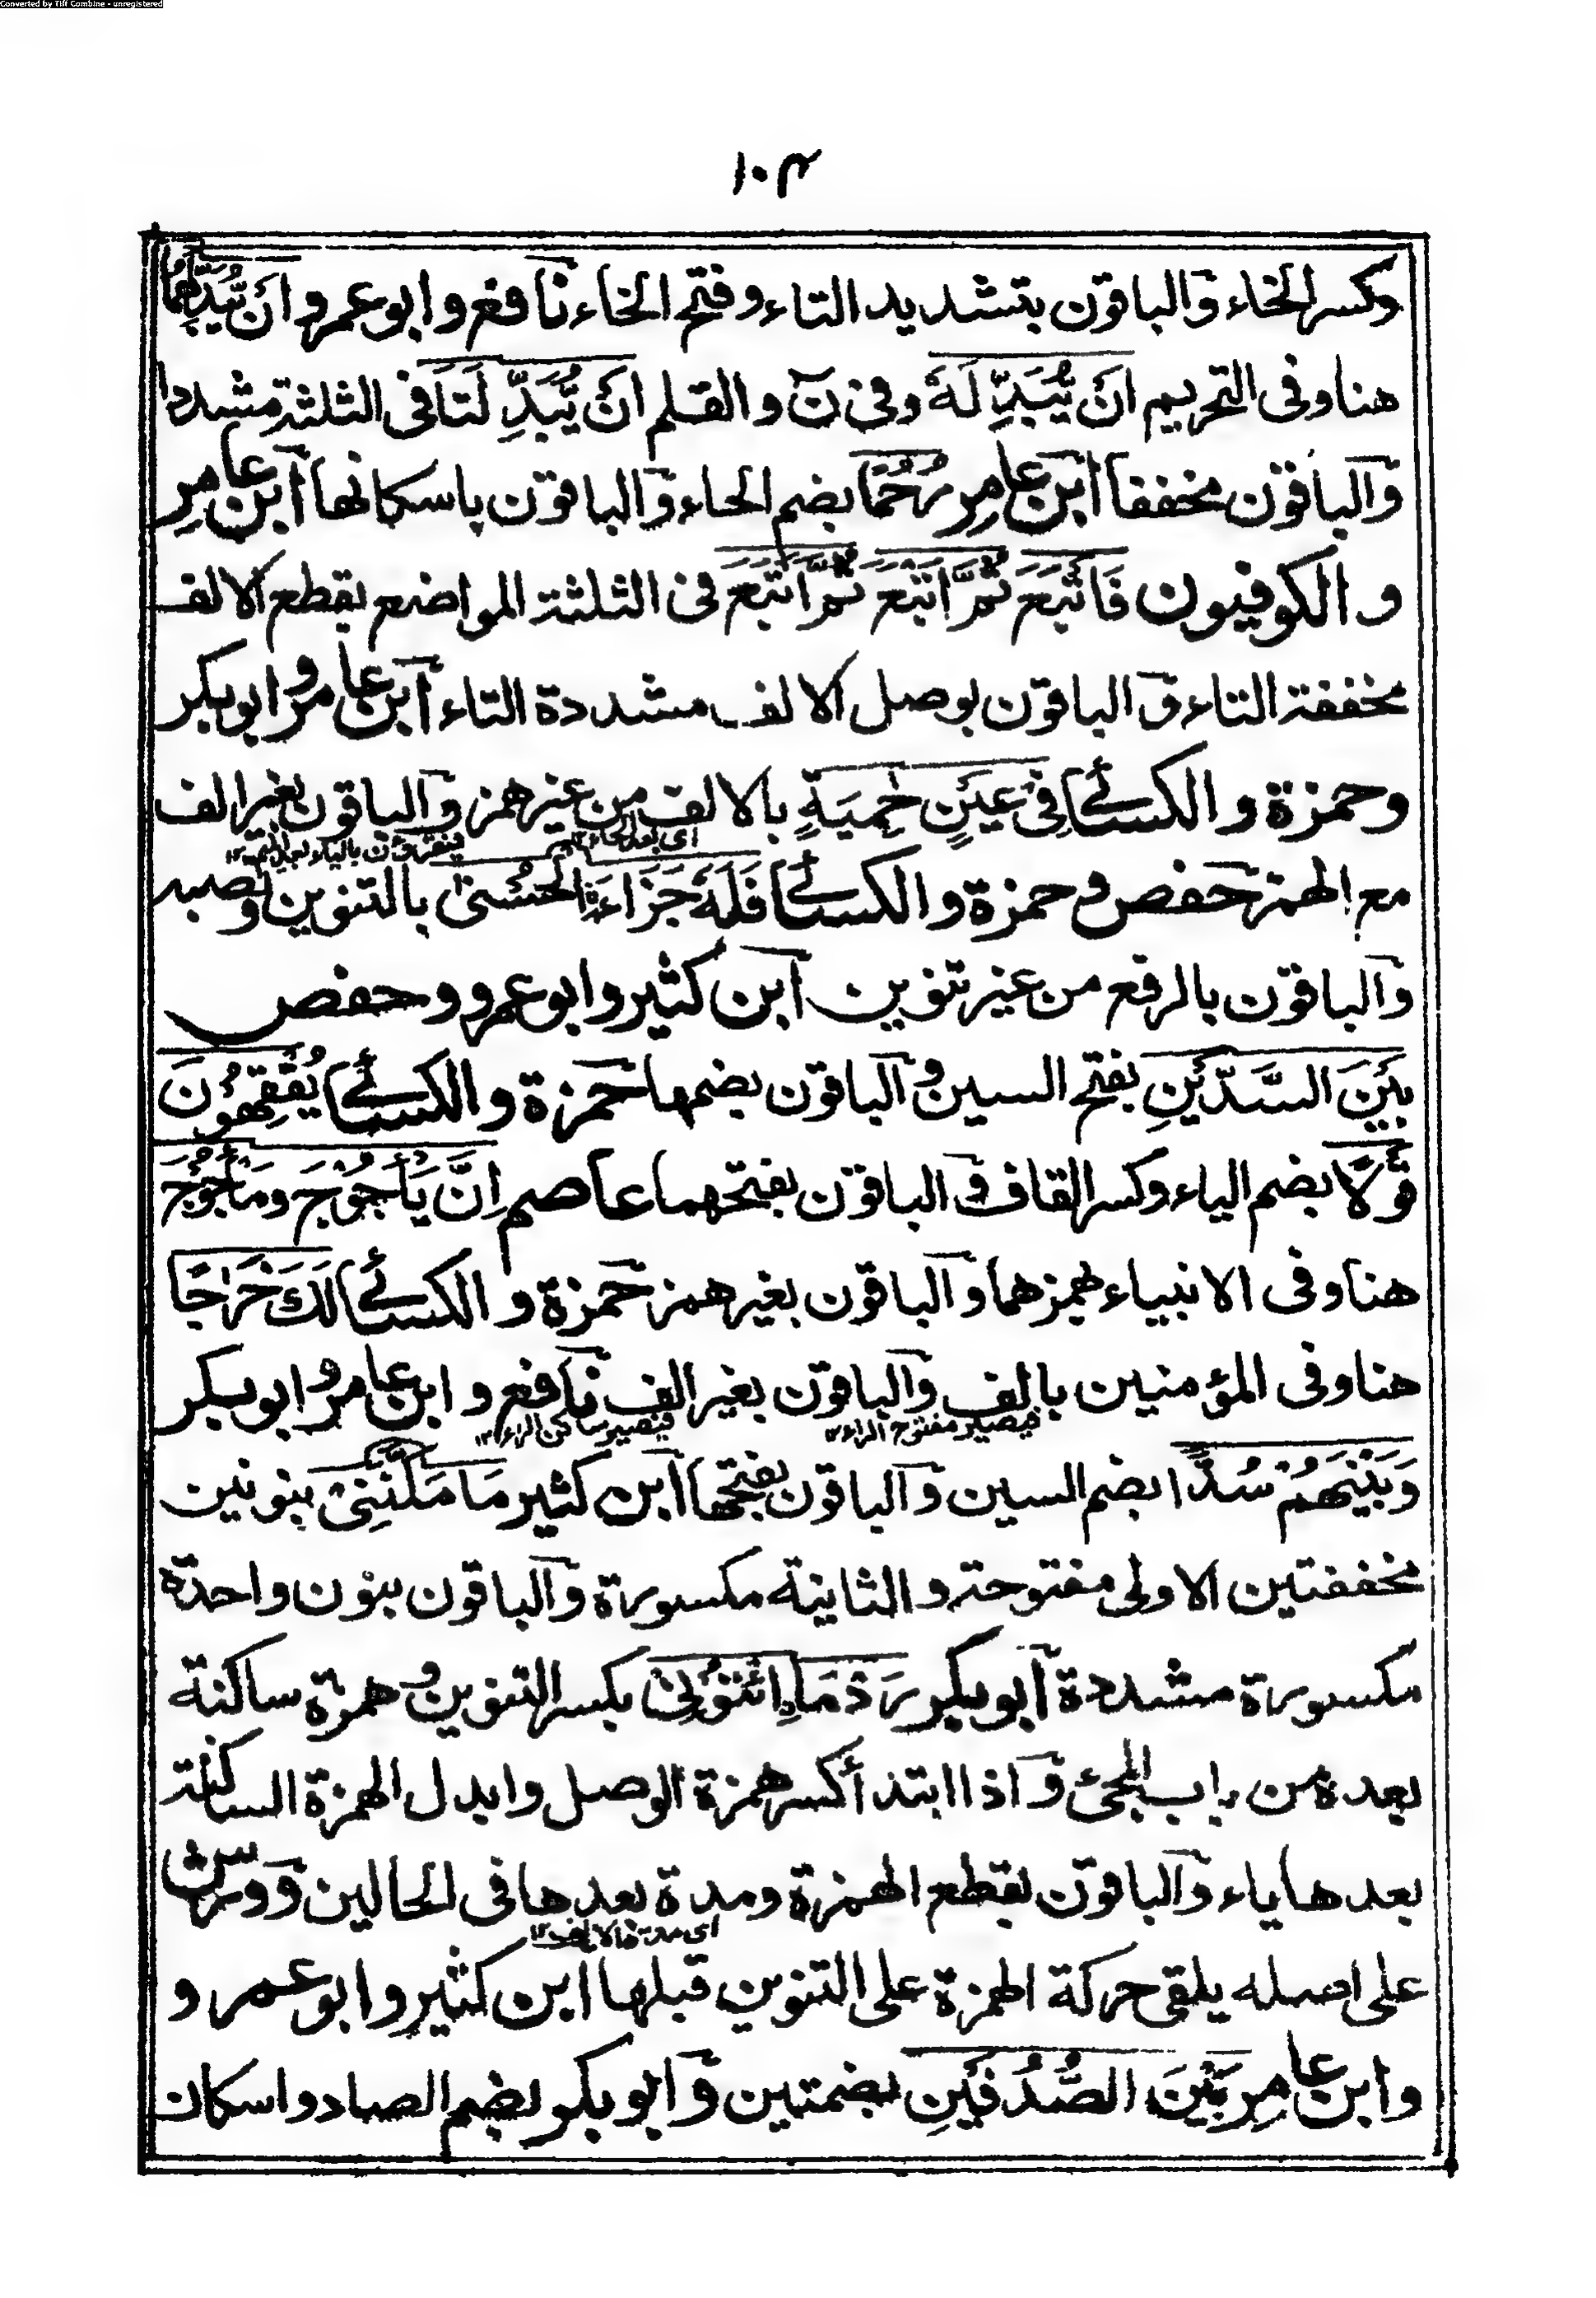 Converted by Tiff Combine - unregistered
١٠٣
وكسر الخاء والباقون بتشديد التاء وفتح الخاء نافع وابو عمرو ان يُّبَدِّلَهُمَا
هنا وفى التحريم اَنْ يُّبَدِّلَهٗ وفى نٓ والقلم اَنْ يُّبَدِّلَنَا فى الثلثة مشددا
والباقون مخففا ابن عامر رُحُمًا بضم الحاء والباقون باسكانها ابن عامِر
والكوفيون فَاَتْبَعَ ثُمَّ اَتْبَعَ ثُمَّ اَتْبَعَ فى الثلثة المواضع بقطع الالف
مخففة التاء والباقون بوصل الالف مشددة التاء ابن عامر وابو بكر
وحمزة والكسائى فِىْ عَيْنٍ حٰمِيَةٍ بالالف من غير همز والباقون بغير الف
اى بعد الحاء ١٢
فيقرؤن بالياء بعد الميم ١٢
مع الهمز حفص وحمزة والكسائى فَلَهٗ جَزَاءَنِ الْحُسْنٰى بالتنوين ونصبه
والباقون بالرفع من غير تنوين ابن كثير وابو عمرو وحفص
بَيْنَ السَّدَّيْنِ بفتح السين والباقون بضمها حمزة والكسائى يُفْقِهُوْنَ
قَوْلًا بضم الياء وكسر القاف والباقون بفتحهما عاصم اِنَّ يَأْجُوْجَ وَمَأْجُوْجَ
هنا وفى الانبياء بهمزهما والباقون بغير همز حمزة والكسائى لَكَ خَرَاجًا
هنا وفى المؤمنين بالف والباقون بغير الف نافع وابن عامر وابو بكر
فيصير مفتوح الراء ١٢
فيصير ساكن الراء ١٢
وَبَيْنَهُمْ سُدًّا بضم السين والباقون بفتحها ابن كثير مَا مَكَّنَنِىْ بنونين
مخففتين الاولى مفتوحة والثانية مكسورة والباقون بنون واحدة
مكسورة مشددة ابو بكر رَدْمَانِ ائْتُوْنِىْ بكسر التنوين وهمزة ساكنة
بعده من باب المجئ واذا ابتدأ كسر همزة الوصل وابدل الهمزة الساكنة
بعدها ياء والباقون بقطع الهمزة ومدة بعدها فى الحالين وورش
على اصله يلقى حركة الهمزة على التنوين قبلها ابن كثير وابو عمرو
وابن عامر بَيْنَ الصُّدُفَيْنِ بضمتين وابو بكر بضم الصاد واسكان